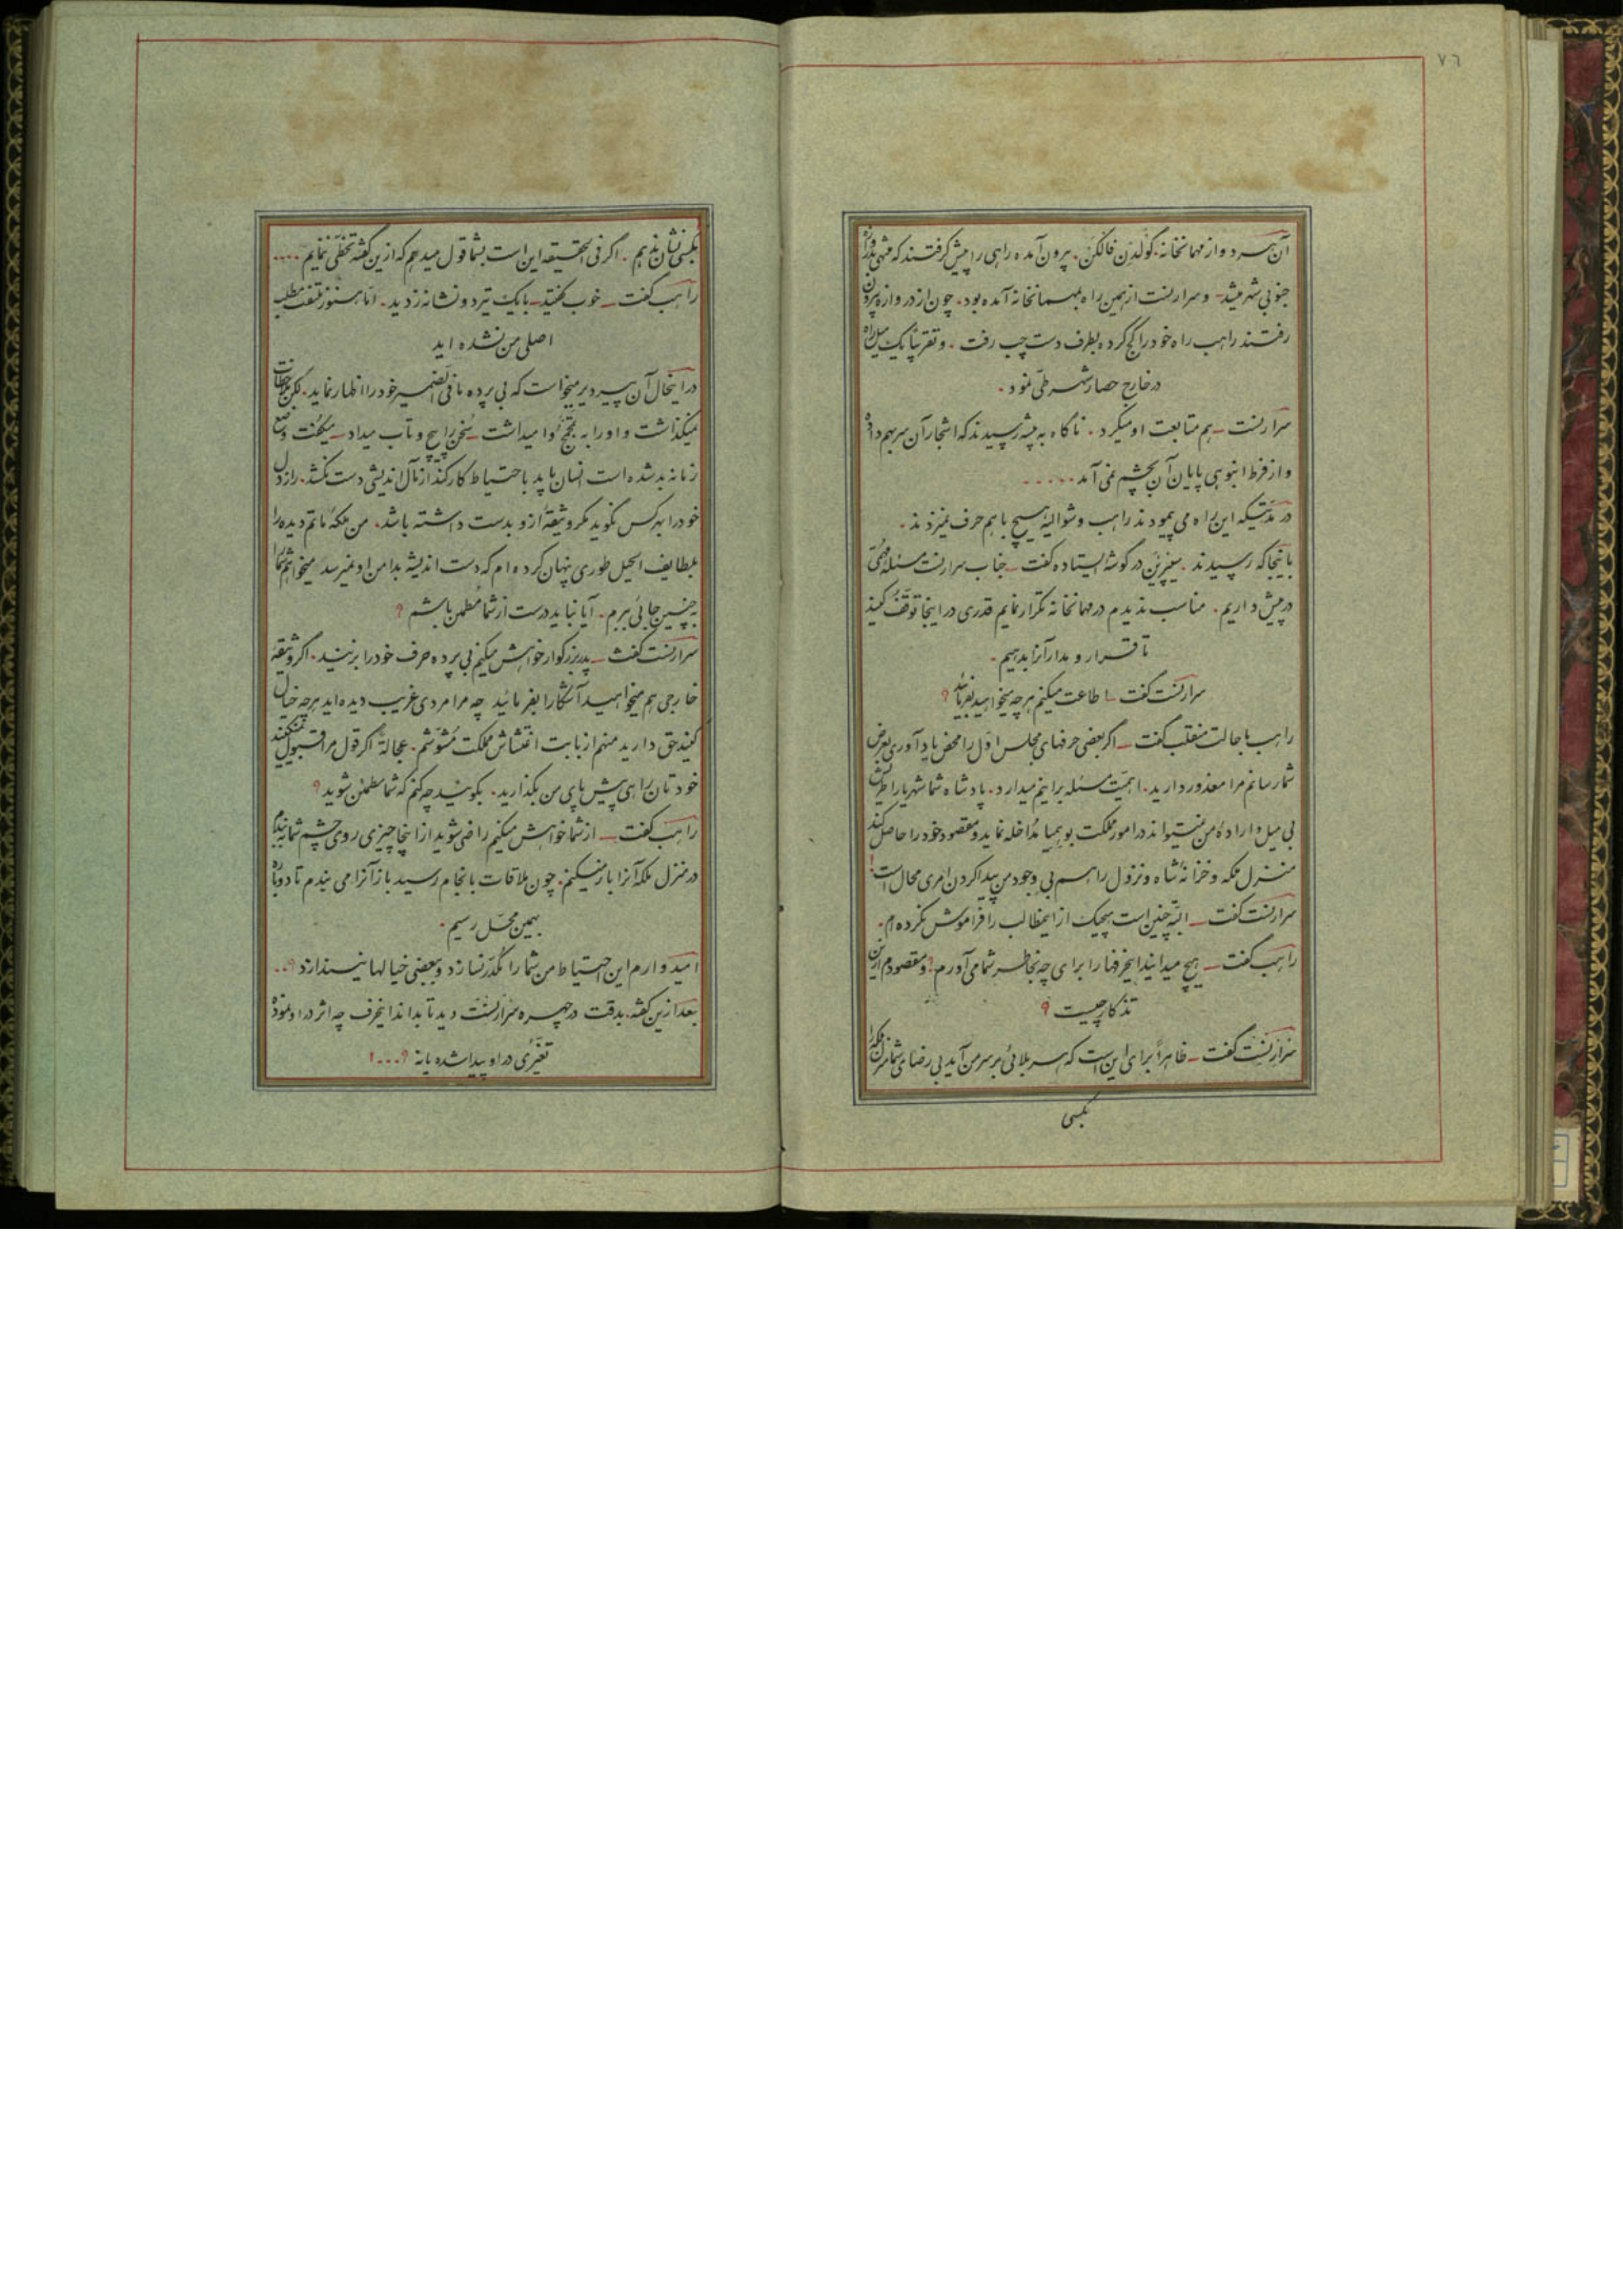 ٧٦
آن هر دو از مهمانخانه گولدن فالکن. بیرون آمده راهی را پیش گرفتند که منتهی بدروازه
جنوبی شهر میشد- و سرارنست از همین راه بمهمانخانه آمده بود. چون از دروازه بیرون
رفتند راهب راه خود را کج کرده بطرف دست چپ رفت. و تقریباً یک میل راه
در خارج حصار شهر طی نمود.
سرارنست- هم متابعت او میکرد. ناگاه به بیشه رسیدند که اشجار آن سر بهم داده
و از فرط انبوهی پایان آن بچشم نمی آمد.....
در مدتیکه این راه می پیمودند راهب و شوالیه هیچ با هم حرف نمیزدند.
باینجا که رسیدند. در گوشه ایستاده گفت- جناب سرارنست مسئله مهمی
در پیش داریم. مناسب ندیدم در مهمانخانه تکرار نمایم قدری در اینجا توقف کنید
تا قرار و مدار آنرا بدهیم.
سرارنست گفت- اطاعت میکنم هرچه میخواهید بفرمائید؟
راهب با حالت منقلب گفت- اگر بعضی حرفهای مجلس اول را محض یادآوری بعرض
شما رسانم مرا معذور دارید. اهمیت مسئله براینم میدارد. پادشاه شما شهریار اطریش
بی میل و اراده من نمیتواند در امور مملکت بوهمیا مداخله نماید و مقصود خود را حاصل کند
منزل ملکه و خزانه شاه ونزول را هم بی وجود من پیدا کردن امری محال است!
سرارنست گفت- البته چنین است هیچیک از اینمطالب را فراموش نکرده ام.
راهب گفت- هیچ میدانید اینحرفها را برای چه بخاطر شما می آورم؟ و مقصودم ازین
تذکار چیست؟
سرارنست گفت- ظاهراً برای این است که هر بلائی بر سر من آید بی رضای شما منزل ملکه را
بکسی
بکسی نشان ندهم. اگر فی الحقیقه این است بشما قول میدهم که ازین گفته تخطی ننمایم....
راهب گفت- خوب گفتید- بایک تیر دو نشانه زدید. اما هنوز ملتفت مطلب
اصلی من نشده اید
در اینحال آن پیر دیر میخواست که بی پرده ما فی الضمیر خود را اظهار نماید. لکن ملاحظات
نمیگذاشت و او را به وا میداشت- سخن را پیچ و تاب میداد- میگفت وضع
زمانه بد شده است انسان باید باحتیاط کار کند از مآل اندیشی دست نکشد. راز دل
خود را بهر کس نگوید مگر وثیقه ازو بدست داشته باشد. من ملکه ماتم دیده را
بلطایف الحیل طوری پنهان کرده ام که دست اندیشه بدامن او نمیرسد میخواهم شما را
به چنین جائی برم. آیا نباید درست از شما مطمئن باشم؟
سرارنست گفت- پدر بزرگوار خواهش میکنم بی پرده حرف خود را بزنید. اگر وثیقه
خارجی هم میخواهید آشکارا بفرمائید چه مرا مردی غریب دیده اید هر چه خیال
کنید حق دارید منهم از بابت اغتشاش مملکت مشوشم. عجالةً اگر قول مرا قبول نمیکنید
خودتان راهی پیش پای من بگذارید. بگوئید چه کنم که شما مطمئن شوید؟
راهب گفت- از شما خواهش میکنم راضی شوید از اینجا چیزی روی چشم شما ببندم
در منزل ملکه آنرا باز میکنم. چون ملاقات بانجام رسید باز آنرا می بندم تا دوباره
بهمین محل رسیم.
امیدوارم این احتیاط من شما را مکدر نسازد و ببعضی خیالها نیندازد؟..
بعد ازین گفته. بدقت در چهره سرارنست دید تا بداند اینحرف چه اثر در او نموده
تغیّری در او پیدا شده یا نه؟...!